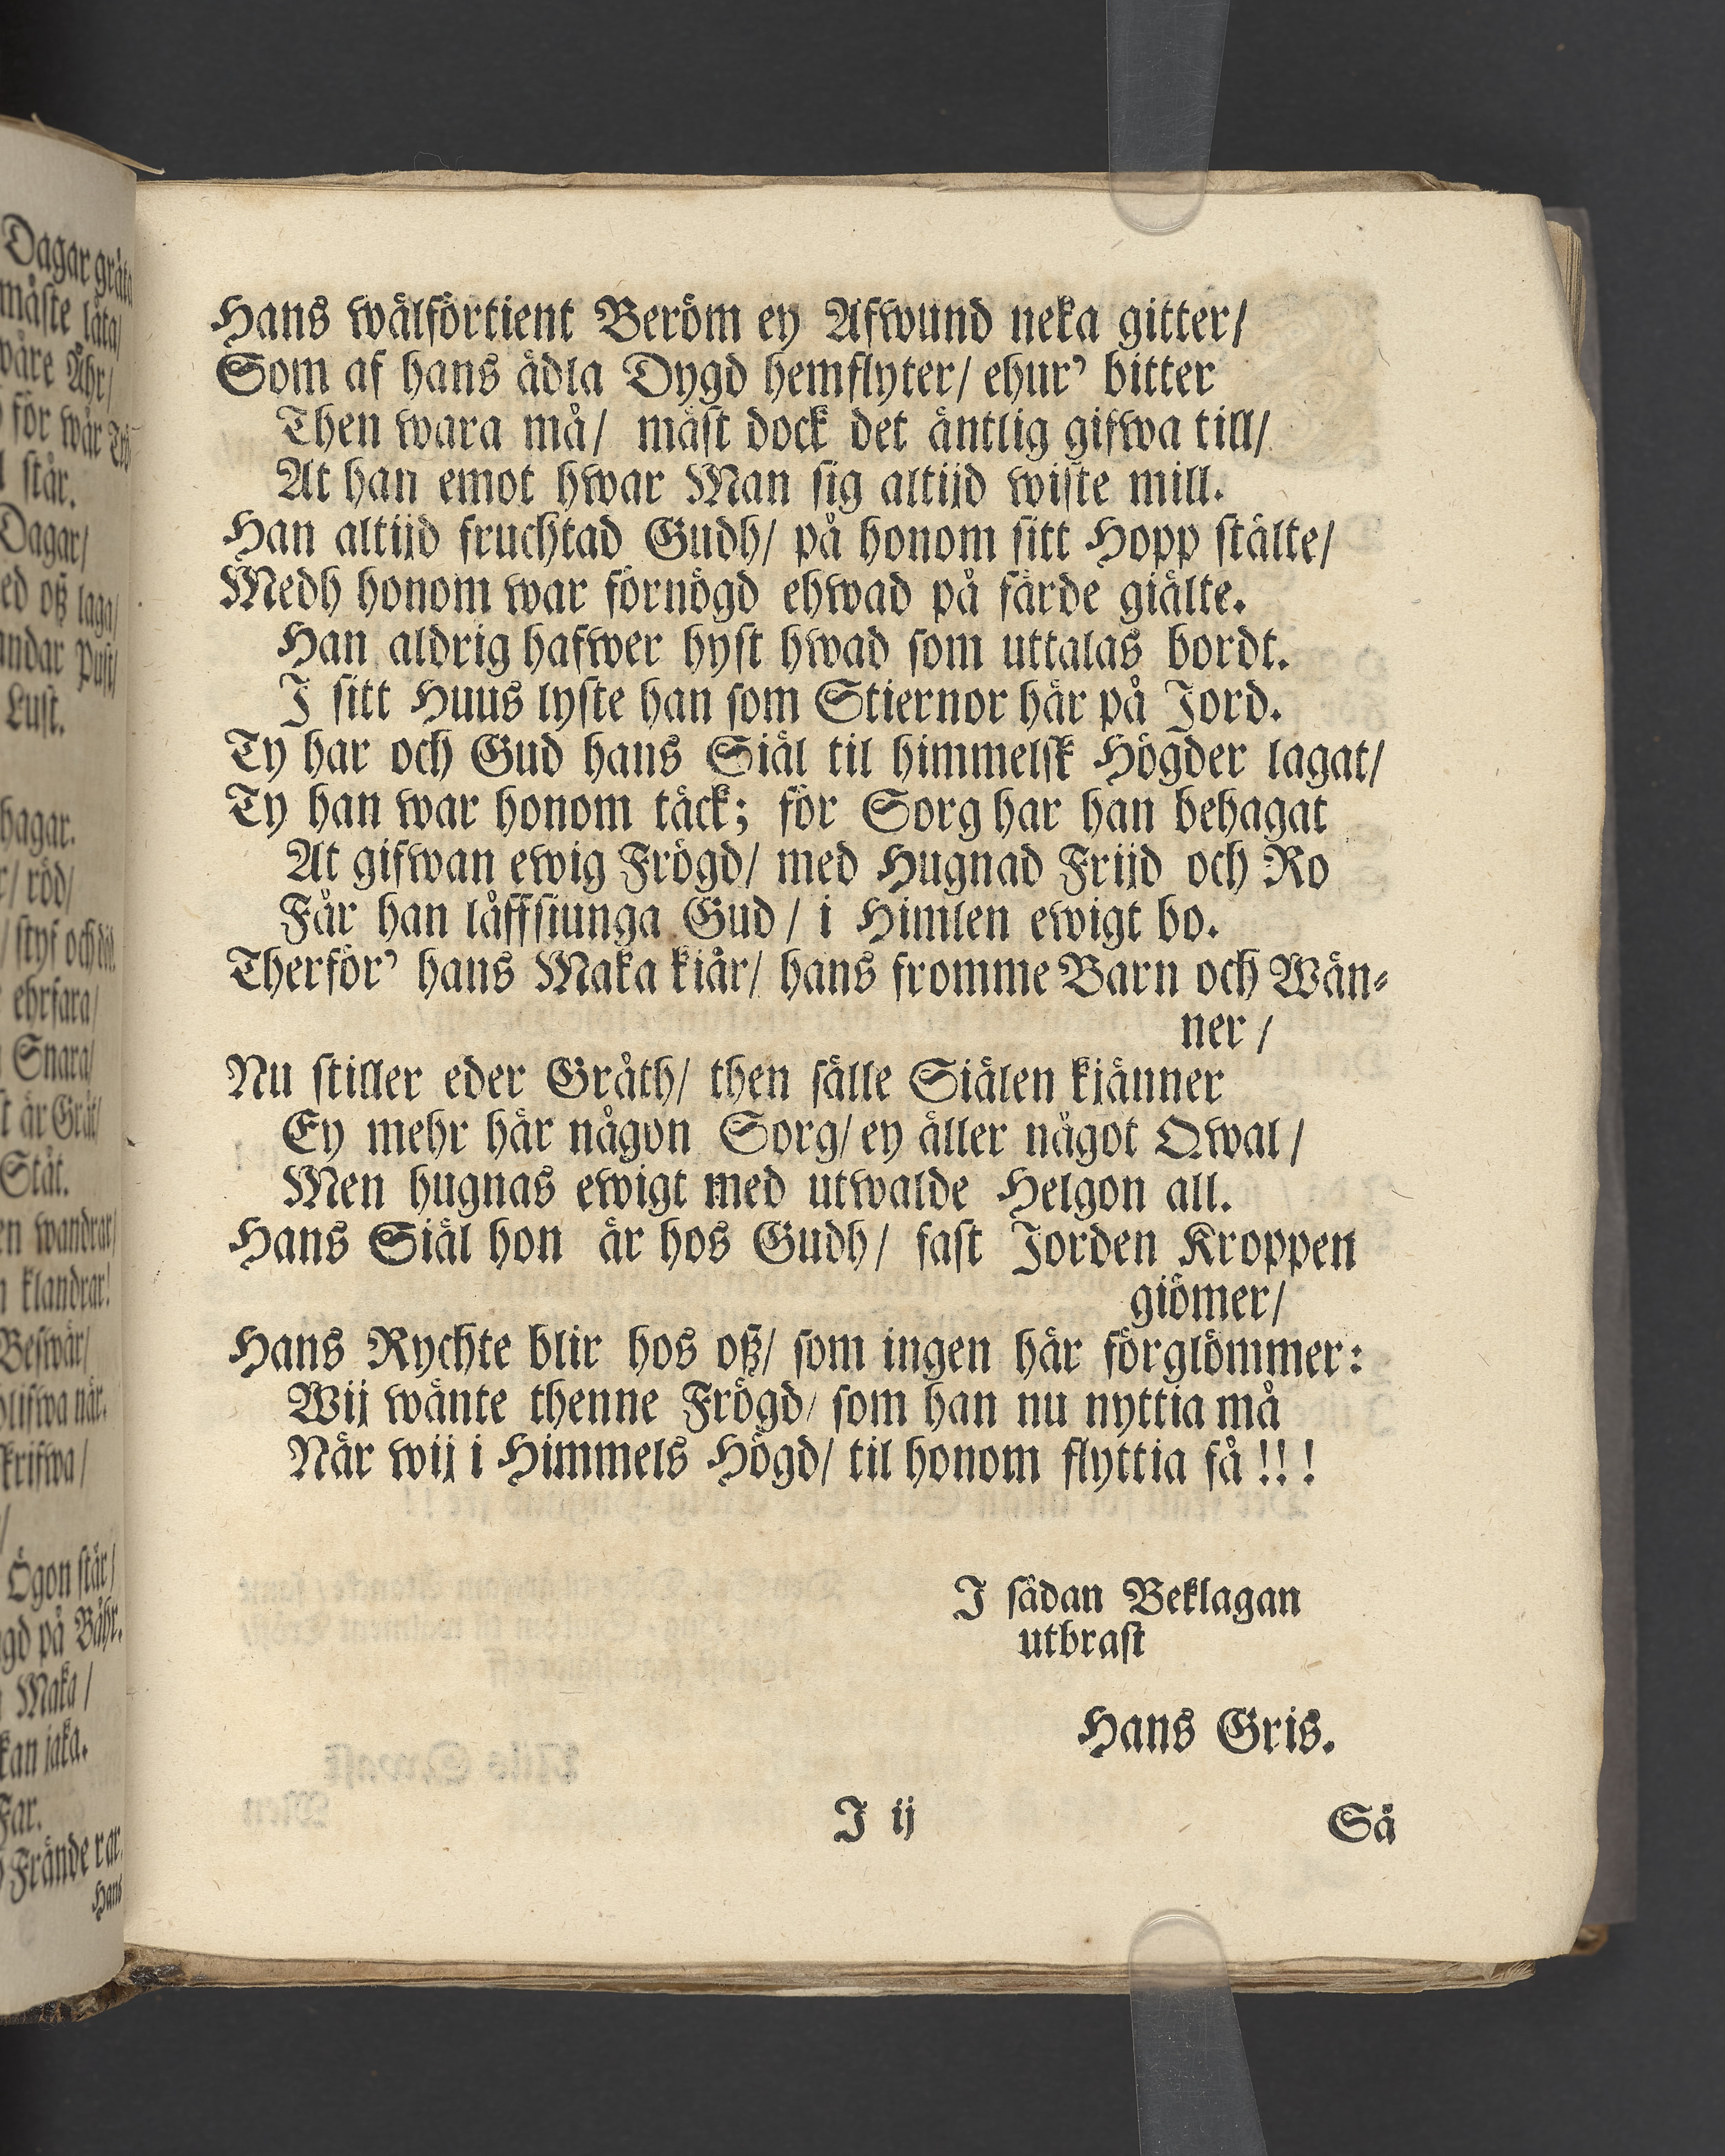 Dagar gråta
måste låta/
wåre Åhr/
för wår
står.
Dagar/
ed oß laga/
andar Pust/
Lust.
hagar.
r/ röd/
/ styf och död.
ehrfara/
Snara/
t är Gråt/
Ståt.
en wandrar/
klandrar!
Beswär/
blifwa när.
krifwa/
Ögon står/
gd på Båhr.
Maka/
kan jaka.
Far.
Frände rar.
Hans
Hans wälförtient Beröm ey Afwund neka gitter/
Som af hans ädla Dygd hemflyter/ ehur' bitter
Then wara må/ mäst dock det äntlig gifwa till/
At han emot hwar Man sig altijd wiste mill.
Han altijd fruchtad Gudh/ på honom sitt Hopp stälte/
Medh honom war förnögd ehwad på färde giälte.
Han aldrig hafwer hyst hwad som uttalas bordt.
I sitt Huus lyste han som Stiernor här på Jord.
Ty har och Gud hans Siäl til himmelsk Högder lagat/
Ty han war honom täck; för Sorg har han behagat
At gifwan ewig Frögd/ med Hugnad Frijd och Ro
Får han låffsiunga Gud/ i Himlen ewigt bo.
Therför' hans Maka kiär/ hans fromme Barn och Wän-
ner/
Nu stiller eder Gråth/ then sälle Siälen kiänner
Ey mehr här någon Sorg/ ey äller något Qwal/
Men hugnas ewigt med utwalde Helgon all.
Hans Siäl hon är hos Gudh/ fast Jorden Kroppen
giömer/
Hans Rychte blir hos oß/ som ingen här förglömmer:
Wij wänte thenne Frögd/ som han nu nyttia må
När wij i Himmels Högd/ til honom flyttia få!!!
I sådan Beklagan
utbrast
Hans Gris.
I ij
Så